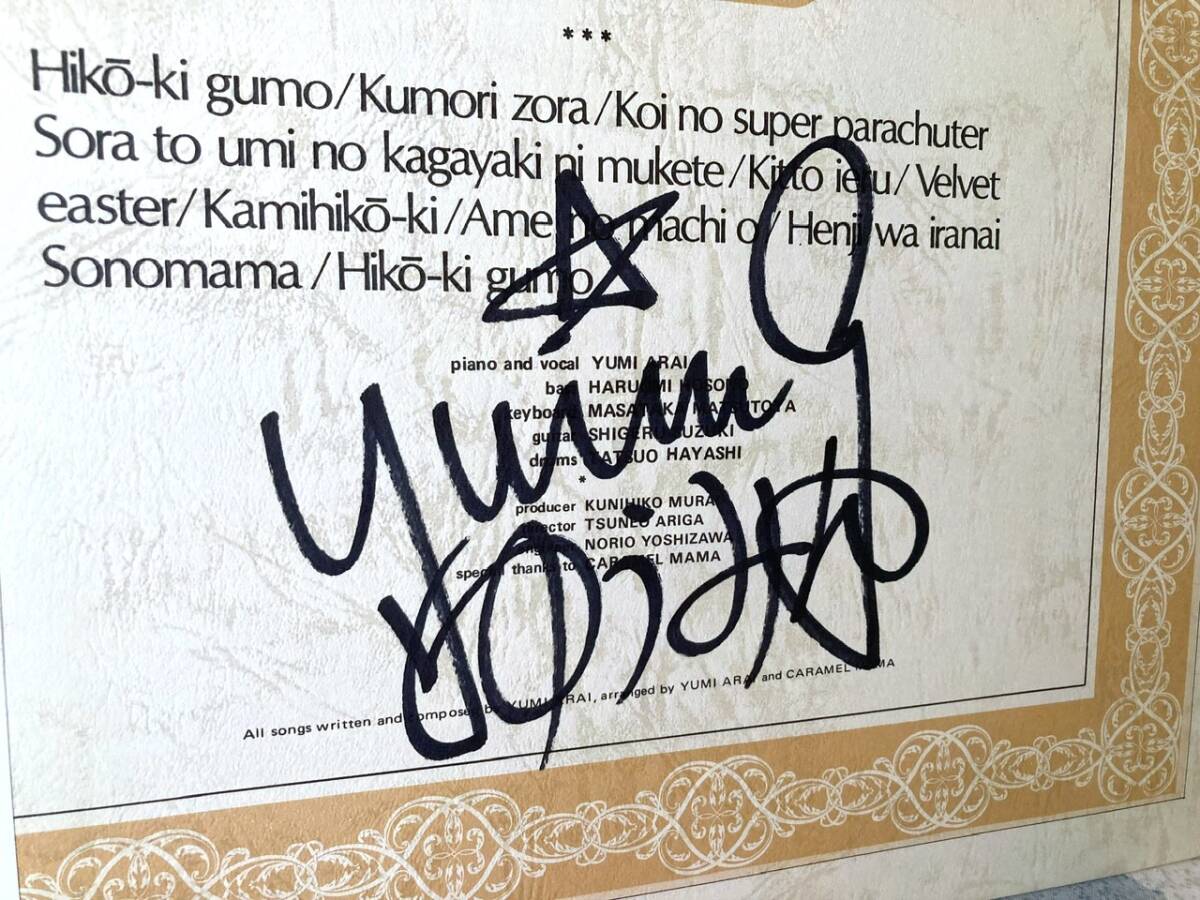 ***
Hikō-ki gumo/Kumori zora/Koi no super parachuter
Sora to umi no kagayaki ni mukete/Kitto ieru/Velvet
easter/Kamihikō-ki/Ame no machi o/Henji wa iranai
Sonomama/Hikō-ki gumo
piano and vocal YUMI ARAI
bass HARUOMI HOSONO
keyboard MASATAKA MATSUTOYA
guitar SHIGERU SUZUKI
drums TATSUO HAYASHI
*
producer KUNIHIKO MURAI
director TSUNEO ARIGA
NORIO YOSHIZAWA
special thanks to CARAMEL MAMA
Yuming
All songs written and composed by YUMI ARAI, arranged by YUMI ARAI and CARAMEL MAMA